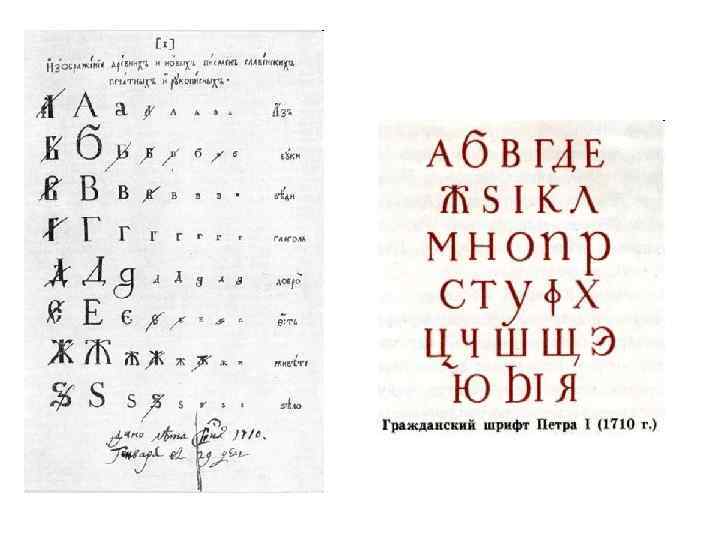 [1]
Изображенїѧ древнихъ и новыхъ писменъ славенскихъ
печатныхъ и рукописныхъ.
А А а а а а а а азъ
Б Б Б Б Б б б б буки
В В В В В В В В вѣди
Г Г Г Г Г Г Г Г глаголь
Д Д д д д д д д добро
Є Е є є є є є є есть
Ж Ж ж ж ж ж ж ж живѣте
Ѕ Ѕ Ѕ Ѕ Ѕ ѕ ѕ ѕ ѕѣло
Дано лѣта 1710.
Генваря въ 29 день
А Б В Г Д Е
Ж Ѕ І К Л
М Н О П Р
С Т У Ф Х
Ц Ч Ш Щ Э
Ю Ы Я
Гражданский шрифт Петра I (1710 г.)